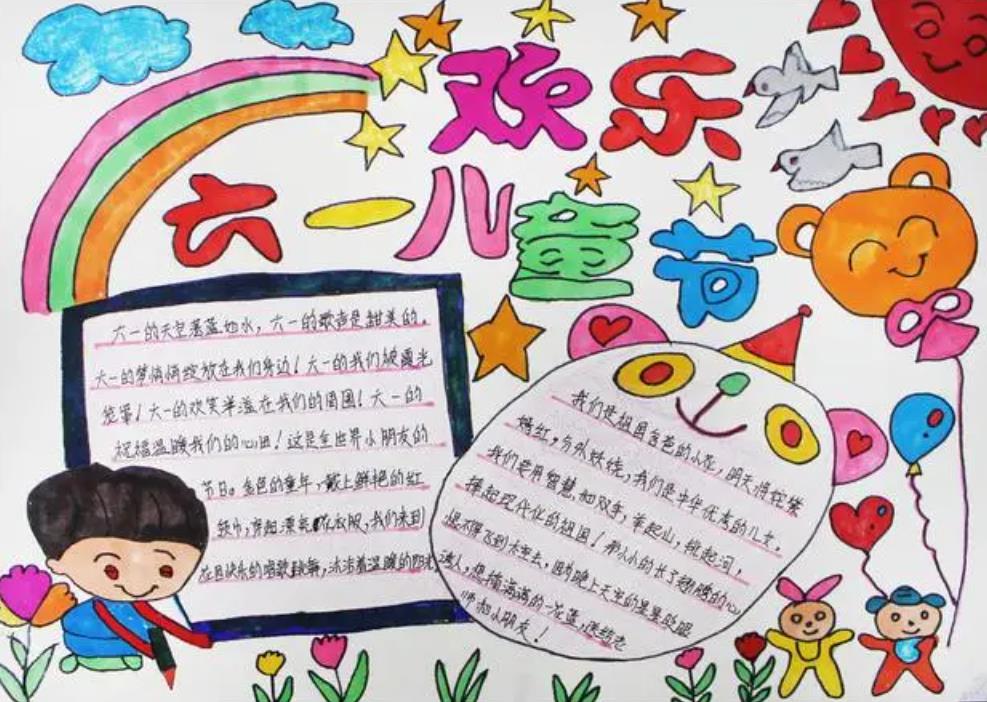 欢乐
六一儿童节
六一的天空湛蓝如水，六一的歌声是甜美的。
六一的梦悄悄绽放在我们身边！六一的我们被霞光
笼罩！六一的欢笑洋溢在我们的周围！六一的
祝福温暖我们的心田！这是全世界小朋友的
节日。金色的童年，戴上鲜艳的红
领巾，穿起漂亮的衣服，我们来到
花园快乐的唱歌跳舞，沐浴着温暖的阳光
我们是祖国含苞的小花，明天将绽紫
嫣红，分外妖娆，我们是中华优秀的儿女。
我们要用智慧和双手，举起山，挑起河，
捧起现代化的祖国！那小小的长了翅膀的心
恨不得飞到太空去，因为晚上天空的星星眨眼
迷人，想摘满满的一花篮，送给老
师和小朋友！